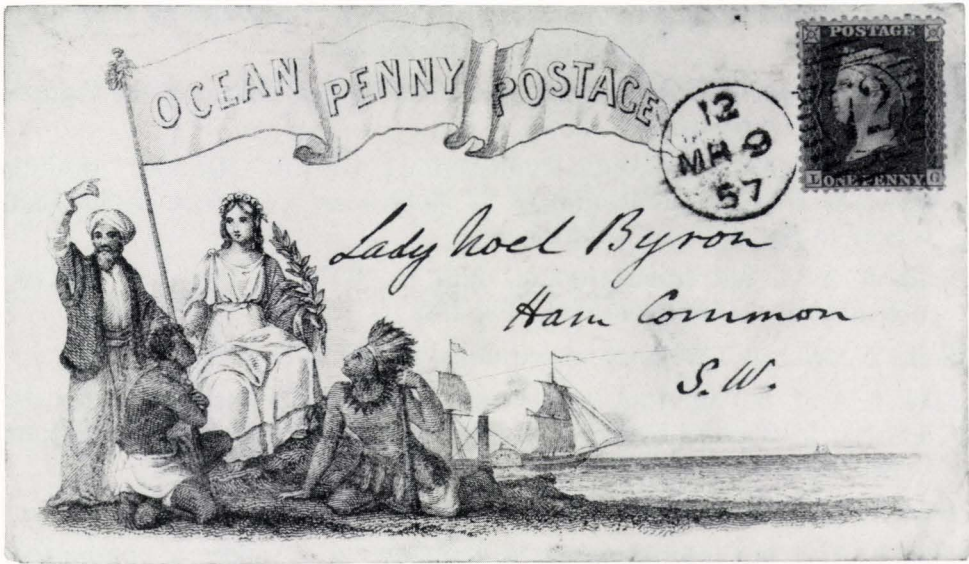 OCEAN PENNY POSTAGE
12
MR 9
57
POSTAGE
12
L ONE PENNY G
Lady Noel Byron
Ham Common
S.W.